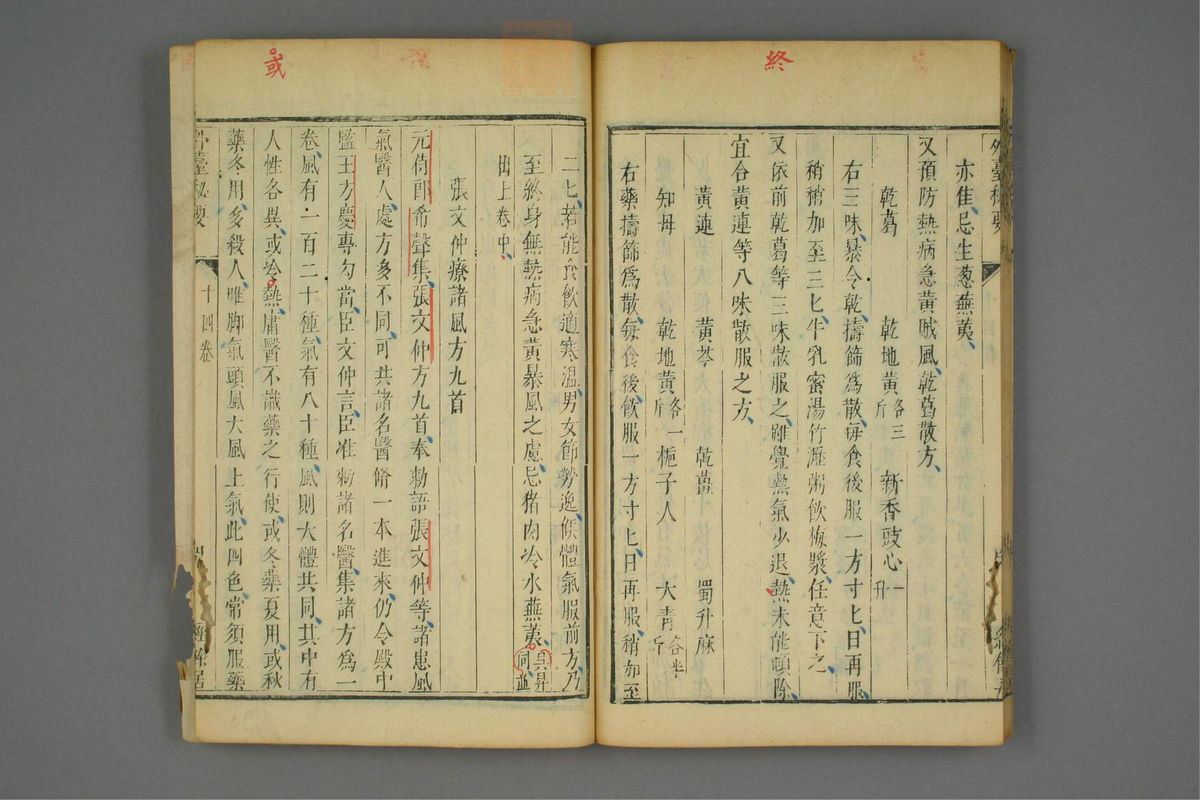 終
外臺秘要
亦佳、忌生葱蕪荑、
又預防熱病急黃賊風、乾葛散方、
乾葛 乾地黃各三斤 新香豉心一升
右三味、暴令乾擣篩爲散、每食後服一方寸匕、日再服、
稍稍加至三匕、牛乳蜜湯竹瀝粥飲梅漿、任意下之、
又依前乾葛等三味散服之、雖覺熱氣少退、熱未能頓除、
宜合黃連等八味散服之方、
黃連 黃芩 乾薑 蜀升麻
知母 乾地黃各一斤 梔子人 大青各半斤
右藥擣篩爲散、每食後、飲服一方寸匕、日再服、稍加至
或
二匕、若能食飲適寒溫、男女節勞逸、候體氣服前方、乃
至終身無熱病急黃暴風之慮、忌豬肉冷水蕪荑、吳昇同並
出上卷中、
張文仲療諸風方九首
元侍郎希聲集、張文仲方九首、奉勑語張文仲等、諸患風
氣醫人、處方多不同、可共諸名醫脩一本進來、仍令殿中
監王方慶專勾當、臣文仲言、臣准勑諸名醫、集諸方爲一
卷、風有一百二十種、氣有八十種、風則大體共同、其中有
人性各異、或冷熱、庸醫不識藥之行使、或冬藥夏用、或秋
藥冬用、多殺人、唯脚氣頭風大風上氣、此四色、常須服藥
外臺秘要 十四卷 經餘居